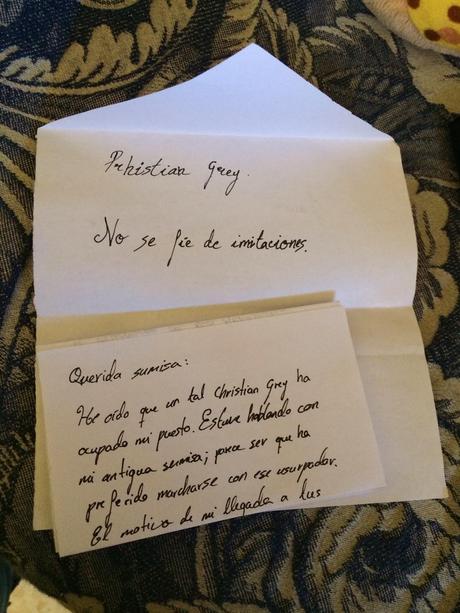 Prhistian Grey.
No se fíe de imitaciones.
Querida sumisa:
He oído que un tal Christian Grey ha
ocupado mi puesto. Estuve hablando con
mi antigua sumisa; parece ser que ha
preferido marcharse con ese usurpador.
El motivo de mi llegada a tus